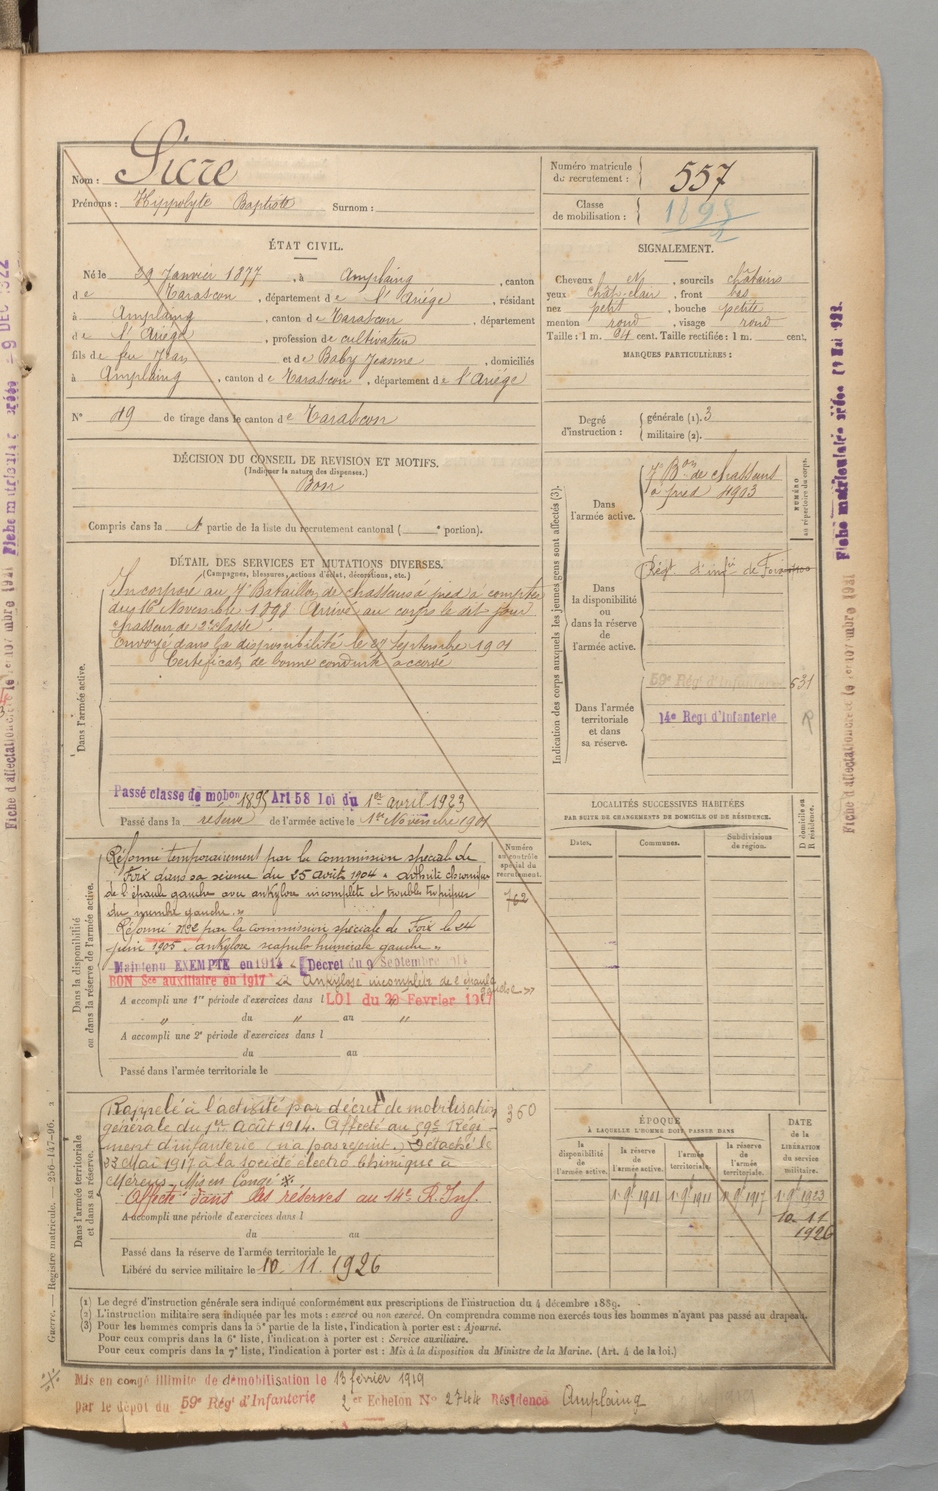 Nom : Sicre
Prénoms : Hippolyte Baptiste Surnom :
Numéro matricule du recrutement : 557
Classe de mobilisation : 1895
ÉTAT CIVIL.
Né le 29 Janvier 1877, à Amplaing, canton
de Tarascon, département de l'Ariége, résidant
à Amplaing, canton de Tarascon, département
de l'Ariége, profession de cultivateur
fils de feu Jean et de Baby Jeanne, domiciliés
à Amplaing, canton de Tarascon, département de l'Ariége
N° 19 de tirage dans le canton de Tarascon
SIGNALEMENT.
Cheveux, sourcils châtains
yeux chât. clair, front bas
nez petit, bouche petite
menton rond, visage rond
Taille : 1 m. 64 cent. Taille rectifiée : 1 m. cent.
MARQUES PARTICULIÈRES :
Degré d'instruction : générale (1). 3
militaire (2).
DÉCISION DU CONSEIL DE REVISION ET MOTIFS.
(Indiquer la nature des dispenses.)
Bon
Compris dans la 1e partie de la liste du recrutement cantonal ( e portion).
DÉTAIL DES SERVICES ET MUTATIONS DIVERSES.
(Campagnes, blessures, actions d'éclat, décorations, etc.)
Dans l'armée active.
Incorporé au 7e Bataillon de chasseurs à pied à compter
du 16 Novembre 1898. Arrivé au corps le dit jour
chasseur de 2e classe.
Envoyé dans la disponibilité le 27 Septembre 1901
Certificat de bonne conduite accordé
Passé classe de mobon 1895 Art 58 loi du 1er avril 1923
Passé dans la réserve de l'armée active le 1er Novembre 1901
Dans la disponibilité ou dans la réserve de l'armée active.
Réformé temporairement par la commission spéciale de
Foix dans sa séance du 25 août 1904 « Arthrite chronique
de l'épaule gauche avec ankylose incomplète et trouble trophique
du membre gauche. »
Réformé n°2 par la commission spéciale de Foix le 24
juin 1905. ankylose scapulo humérale gauche »
Maintenu EXEMPTE en 1914 Décret du 9 Septembre 1914
BON Sce auxiliaire en 1917 Ankylose incomplète de l'épaule
gauche »
A accompli une 1re période d'exercices dans l LOI du 20 Fevrier 1917
" du " au "
A accompli une 2e période d'exercices dans l
du au
Passé dans l'armée territoriale le
Numéro au contrôle spécial du recrutement.
762
360
Dans l'armée territoriale et dans sa réserve.
Rappelé à l'activité par décret de mobilisation
générale du 1er Août 1914. Affecté au 59e Régi-
ment d'infanterie (n'a pas rejoint.) Détaché le
23 Mai 1917 à la société électro Chimique à
Mérens. Mis en Congé
Affecté dans les réserves au 14e R. Inf.
A accompli une période d'exercices dans l
du au
Passé dans la réserve de l'armée territoriale le
Libéré du service militaire le 10. 11. 1926
Indication des corps auxquels les jeunes gens sont affectés (3).
NUMÉRO au répertoire du corps.
Dans l'armée active.
7e Bon de chasseurs
à pied 4903
Dans la disponibilité ou dans la réserve de l'armée active.
Régt d'infie de Foix
Dans l'armée territoriale et dans sa réserve.
59e Régt d'Infanterie 531
14e Regt d'infanterie
LOCALITÉS SUCCESSIVES HABITÉES
PAR SUITE DE CHANGEMENTS DE DOMICILE OU DE RÉSIDENCE.
Dates. Communes. Subdivisions de région. D domicile ou R résidence.
ÉPOQUE
À LAQUELLE L'HOMME DOIT PASSER DANS
la disponibilité de l'armée active.
la réserve de l'armée active.
l'armée territoriale.
la réserve de l'armée territoriale.
DATE de la LIBÉRATION du service militaire.
1 9bre 1901 1 9bre 1911 1 9bre 1917 1 9bre 1923
10. 11
1926
(1) Le degré d'instruction générale sera indiqué conformément aux prescriptions de l'instruction du 4 décembre 1889.
(2) L'instruction militaire sera indiquée par les mots : exercé ou non exercé. On comprendra comme non exercés tous les hommes n'ayant pas passé au drapeau.
(3) Pour les hommes compris dans la 5e partie de la liste, l'indication à porter est : Ajourné.
Pour ceux compris dans la 6e liste, l'indication à porter est : Service auxiliaire.
Pour ceux compris dans la 7e liste, l'indication à porter est : Mis à la disposition du Ministre de la Marine. (Art. 4 de la loi.)
Mis en congé illimité de démobilisation le 13 février 1919
par le dépot du 59e Régt d'Infanterie 2e Echelon No 2744 Résidence Amplaing
Guerre. — Registre matricule. — 256-147-96.